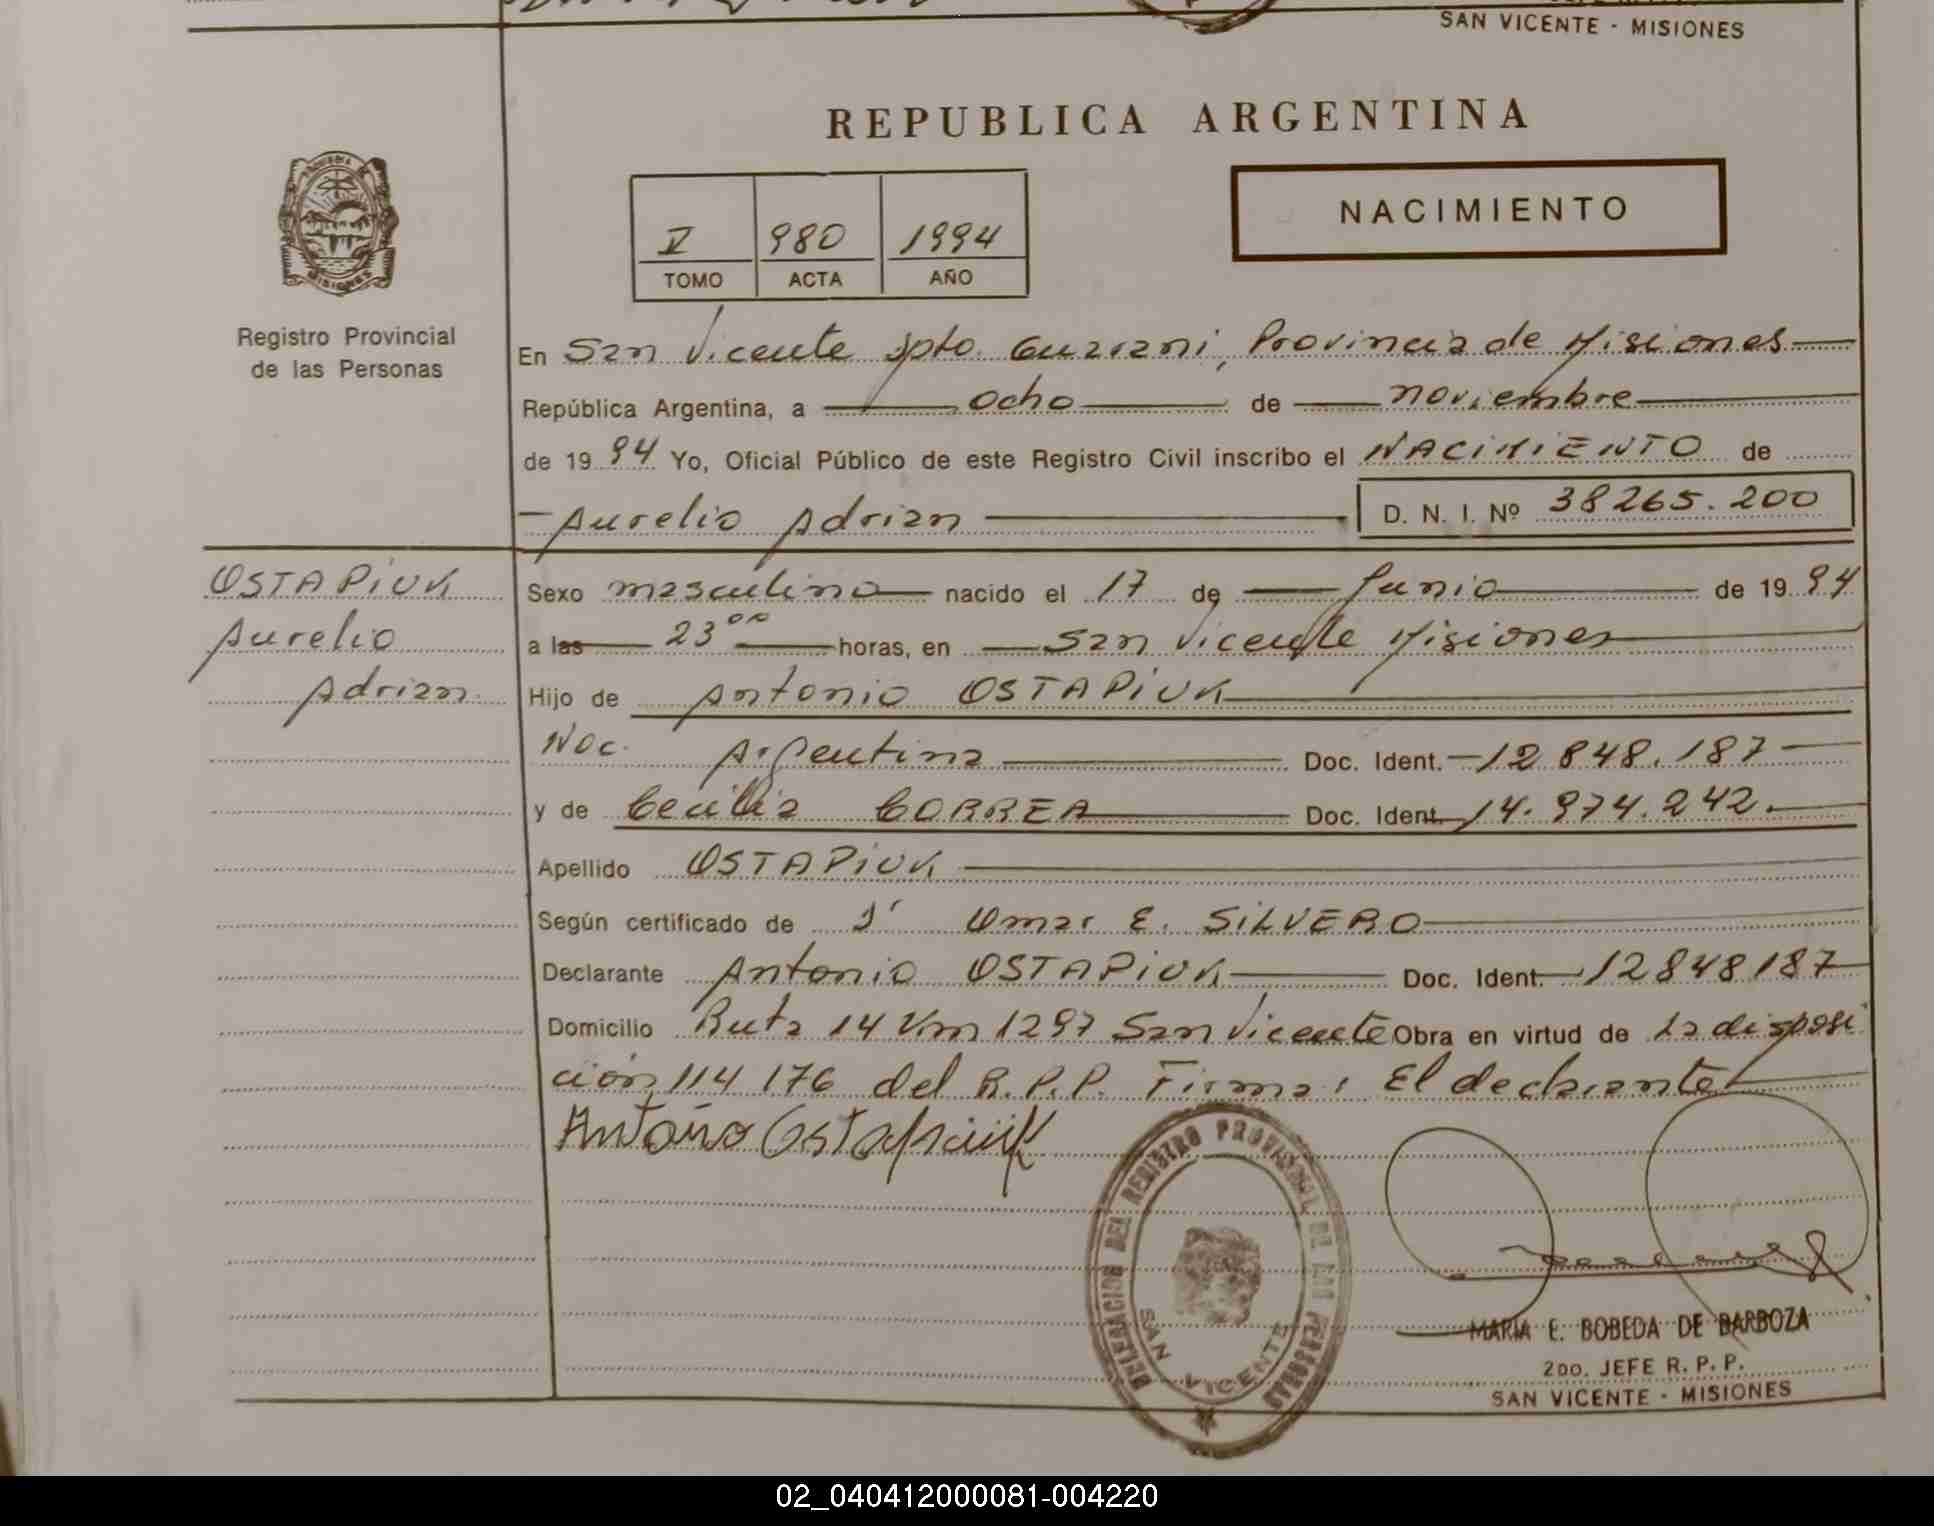 SAN VICENTE - MISIONES
REPUBLICA ARGENTINA
NACIMIENTO
V 980 1994
TOMO ACTA AÑO
MISIONES
Registro Provincial
de las Personas
En San Vicente Dpto. Guarani, Provincia de Misiones
República Argentina, a ocho de noviembre
de 1994 Yo, Oficial Público de este Registro Civil inscribo el NACIMIENTO de
Aurelio Adrian D. N. I. Nº 38265.200
OSTAPIUK
Aurelio
Adrian
Sexo masculino nacido el 17 de Junio de 1994
a las 23 00 horas, en San Vicente Misiones
Hijo de Antonio OSTAPIUK
Nac. Argentina Doc. Ident. 12 848.187
y de Cecilia CORREA Doc. Ident. 14.974.242.
Apellido OSTAPIUK
Según certificado de Omar E. SILVERO
Declarante Antonio OSTAPIUK Doc. Ident. 12848187
Domicilio Ruta 14 Km 1297 San Vicente Obra en virtud de la disposi
ción 114 176 del R.P.P. Firma: El declarante
Antonio Ostapiuk
DELEGACION DEL REGISTRO PROVINCIAL DE LAS PERSONAS
SAN VICENTE
MARIA E. BOBEDA DE BARBOZA
2do. JEFE R. P. P.
SAN VICENTE - MISIONES
02_040412000081-004220